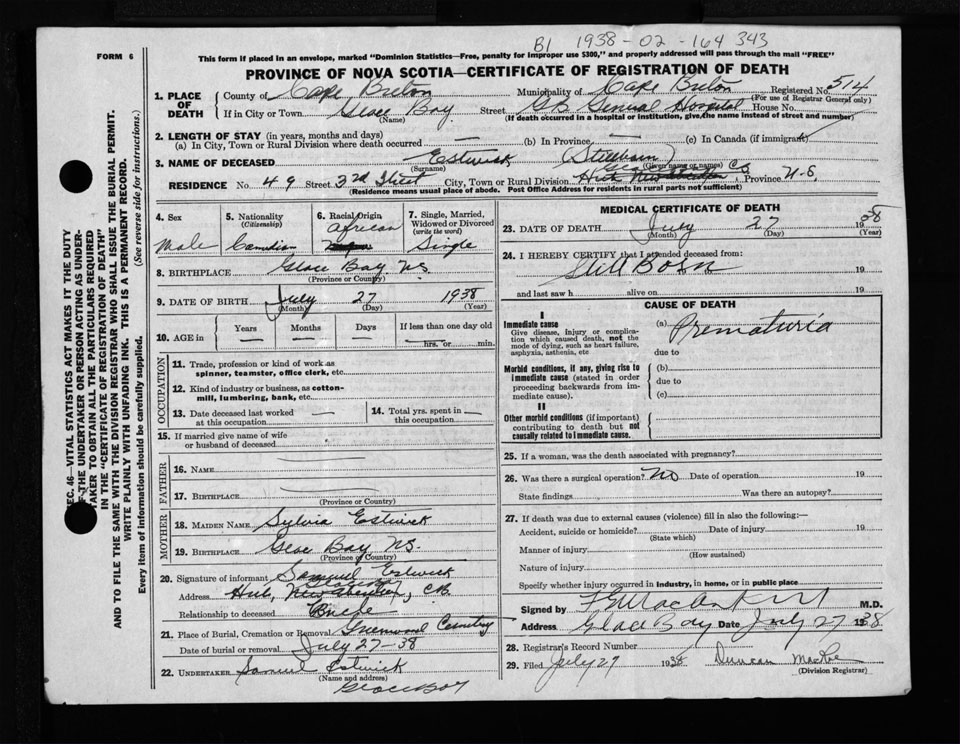 B1 1938-02-164343
FORM 6
This form if placed in an envelope, marked "Dominion Statistics—Free, penalty for improper use $300," and properly addressed will pass through the mail "FREE"
PROVINCE OF NOVA SCOTIA—CERTIFICATE OF REGISTRATION OF DEATH
1. PLACE OF DEATH
County of Cape Breton Municipality of Cape Breton Registered No. 514
(For use of Registrar General only)
If in City or Town Glace Bay Street G.B General Hospital House No.
(Name) (If death occurred in a hospital or institution, give the name instead of street and number)
2. LENGTH OF STAY (in years, months and days)
(a) In City, Town or Rural Division where death occurred — (b) In Province — (c) In Canada (if immigrant)
3. NAME OF DECEASED Estwick (Stillborn)
(Surname) (Given name or names)
RESIDENCE No. 49 Street 3rd Street City, Town or Rural Division Hub C.B. Province N.S.
(Residence means usual place of abode. Post Office Address for residents in rural parts not sufficient)
4. Sex
Male
5. Nationality
(Citizenship)
Canadian
6. Racial Origin
African
7. Single, Married, Widowed or Divorced
(write the word)
Single
8. BIRTHPLACE Glace Bay NS
(Province or Country)
9. DATE OF BIRTH July 27 1938
(Month) (Day) (Year)
10. AGE in
Years Months Days If less than one day old
— — — hrs. or min.
OCCUPATION
11. Trade, profession or kind of work as
spinner, teamster, office clerk, etc.
12. Kind of industry or business, as cotton-
mill, lumbering, bank, etc.
13. Date deceased last worked
at this occupation —
14. Total yrs. spent in
this occupation —
15. If married give name of wife
or husband of deceased
FATHER
16. NAME
17. BIRTHPLACE
(Province or Country)
MOTHER
18. MAIDEN NAME Sylvia Estwick
19. BIRTHPLACE Glace Bay NS.
(Province or Country)
20. Signature of informant Samuel Estwick
Address Hub, C.B.
Relationship to deceased Uncle
21. Place of Burial, Cremation or Removal Greenwood Cemetery
Date of burial or removal July 27-38
22. UNDERTAKER Samuel Estwick
(Name and address)
Glace Bay
MEDICAL CERTIFICATE OF DEATH
23. DATE OF DEATH July 27 1938
(Month) (Day) (Year)
24. I HEREBY CERTIFY that I attended deceased from:
Still Born 19
and last saw h alive on 19
CAUSE OF DEATH
I
Immediate cause
Give disease, injury or complica-
tion which caused death, not the
mode of dying, such as heart failure,
asphyxia, asthenia, etc
(a) Prematuria
due to
Morbid conditions, if any, giving rise to
immediate cause (stated in order
proceeding backwards from im-
mediate cause).
(b)
due to
(c)
II
Other morbid conditions (if important)
contributing to death but not
causally related to immediate cause.
25. If a woman, was the death associated with pregnancy?
26. Was there a surgical operation? No Date of operation 19
State findings Was there an autopsy?
27. If death was due to external causes (violence) fill in also the following:—
Accident, suicide or homicide? Date of injury 19
(State which)
Manner of injury
(How sustained)
Nature of injury
Specify whether injury occurred in industry, in home, or in public place
Signed by M.D.
Address Glace Bay Date July 27 1938
28. Registrar's Record Number
29. Filed July 27 1938 Duncan MacRae
(Division Registrar)
SEC. 46—VITAL STATISTICS ACT MAKES IT THE DUTY
OF THE UNDERTAKER OR PERSON ACTING AS UNDER-
TAKER TO OBTAIN ALL THE PARTICULARS REQUIRED
IN THE "CERTIFICATE OF REGISTRATION OF DEATH"
AND TO FILE THE SAME WITH THE DIVISION REGISTRAR WHO SHALL ISSUE THE BURIAL PERMIT.
WRITE PLAINLY WITH UNFADING INK. THIS IS A PERMANENT RECORD.
Every item of information should be carefully supplied. (See reverse side for instructions.)